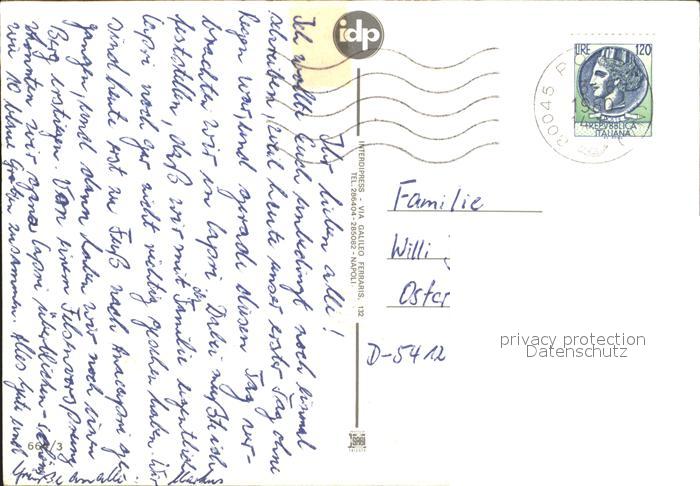 Ihr lieben alle!
Ich wollte Euch unbedingt noch einmal
schreiben, weil heute unser erster Tag ohne
Regen war, und gerade diesen Tag ver-
brachten wir in Capri. Dabei mußte ich
feststellen, daß wir mit Familie eigentlich
Capri noch gar nicht richtig gesehen haben. Wir
sind heute erst zu Fuß nach Anacapri ge-
gangen, und dann haben wir noch einen
Berg erstiegen. Von einem Felsvorsprung
konnten wir ganz Capri überblicken -
wie 10 Jahre zusammen. Alles Gute und
Grüße an alle: Markus
idp
INTERDIPRESS - VIA GALILEO FERRARIS, 132
TEL. 286404 - 285082 - NAPOLI
LIRE 120
REPVBBLICA
ITALIANA
80045
Familie
Willi
Oster
D-5412
privacy protection
Datenschutz